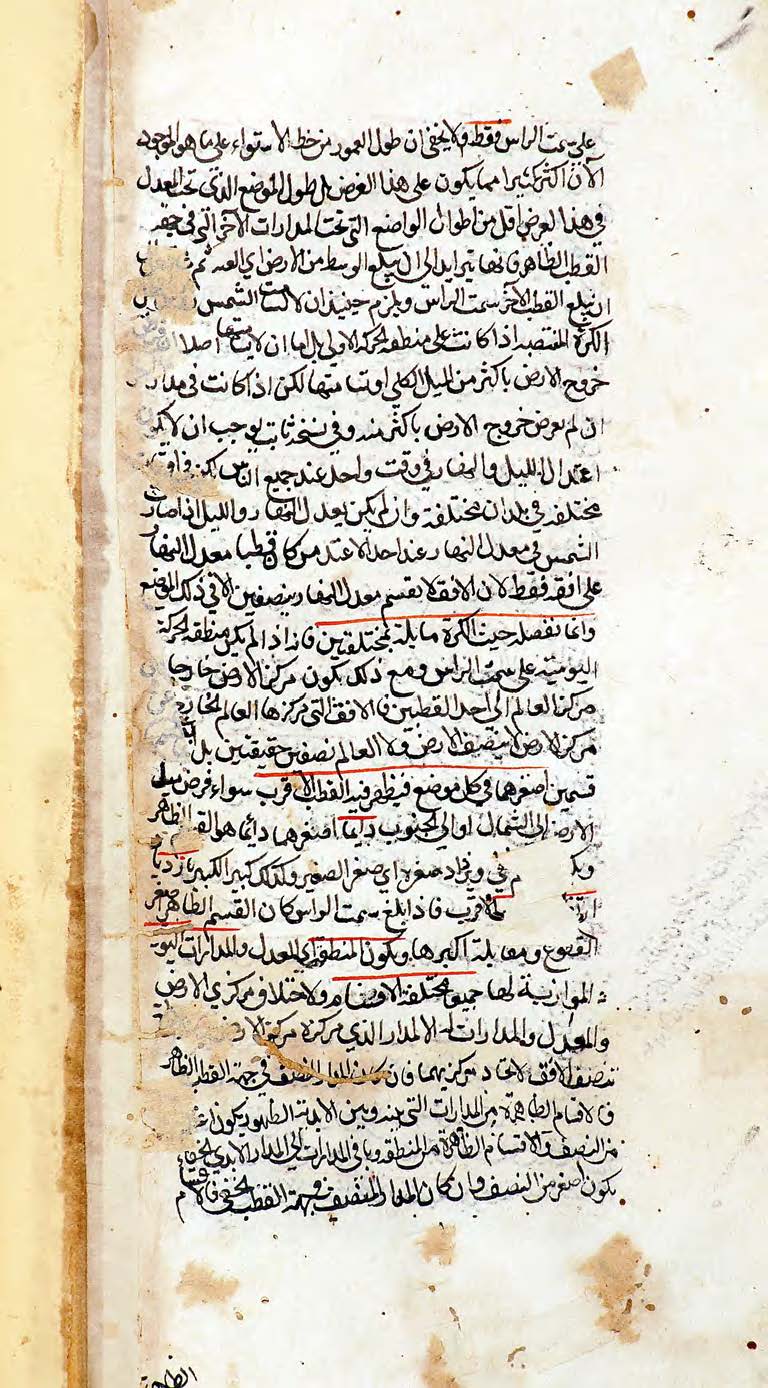 على سمت الراس فقط ولا يخفى ان طول العمود من خط الاستواء على ما هو الموجود
الآن اكثر كثيرا مما يكون على هذا الفرض بل طول الموضع الذى تحت المعدل
فى هذا الفرض اقل من اطوال المواضع التى تحت المدارات الآخر التى فى جهة
القطب الظاهر فانها تتزايد الى ان يبلغ الوسط من الارض اى العه ثم
ان يبلغ القطب الآخر سمت الراس ويلزم حينئذ ان لا تسامت الشمس
الكرة المنتصبة اذا كانت على منطقة الحركة الاولى بل اما ان لا يسامتها اصلا ان فرض
خروج الارض باكثر من الميل الكلى او تسامتها لكن اذا كانت فى مدار
ان لم يفرض خروج الارض باكثر منه وفى نسخة ثابت يوجب ان لا يكون
اعتدال الليل والنهار فى وقت واحد عند جميع الناس لكن فى اوقات
مختلفة فى بلدان مختلفة وان لم يكن يعدل النهار والليل اذا صارت
الشمس فى معدل النهار عند احد الا عند من كان قطبا معدل النهار
على افقه فقط لان الافق لا يقسم معدل النهار بنصفين الا فى ذلك الموضع
وانما تفصله حيث الكرة مايلة بمختلفين فانه اذا لم يكن منطقة الحركة
اليومية على سمت الراس ومع ذلك يكون مركز الارض خارجا
مركز العالم الى احد القطبين فالافق التى مركزها العالم الخارج عن
مركز الارض لا ينصف الارض ولا العالم نصفين حقيقيين بل الى
قسمين اصغرهما فى كل موضع فيظهر فيه القطب الاقرب سواء فرض ميل
الارض الى الشمال او الى الجنوب دائما اصغرهما دائما هو القسم الظاهر
ويزداد صغره اى صغر الصغير وكذلك كبر الكبير بازدياد
الاقرب فاذا بلغ سمت الراس كان القسم الظاهر اصغر
القطوع ومقابلة اكبرها ويكون المنطقة اى المعدل والمدارات اليومية
الموازية لها جميعا مختلفة الاقسام لاختلاف مركزى الارض
والمعدل والمدارات اى الا المدار الذى مركزه مركز الارض
بنصف الافق لاتحاد مركزيهما فان كان المدار المنصف فى جهة القطب الظاهر
فالاقسام الظاهرة من المدارات التى بينه وبين الابدية الظهور يكون اعظم
من النصف والاقسام الظاهرة من المنطقة وباقى المدارات الى المدار الابدى الخفاء
يكون اصغر من النصف وان كان المدار المنتصف فى جهة القطب الخفى فالاقسام
الظاهرة